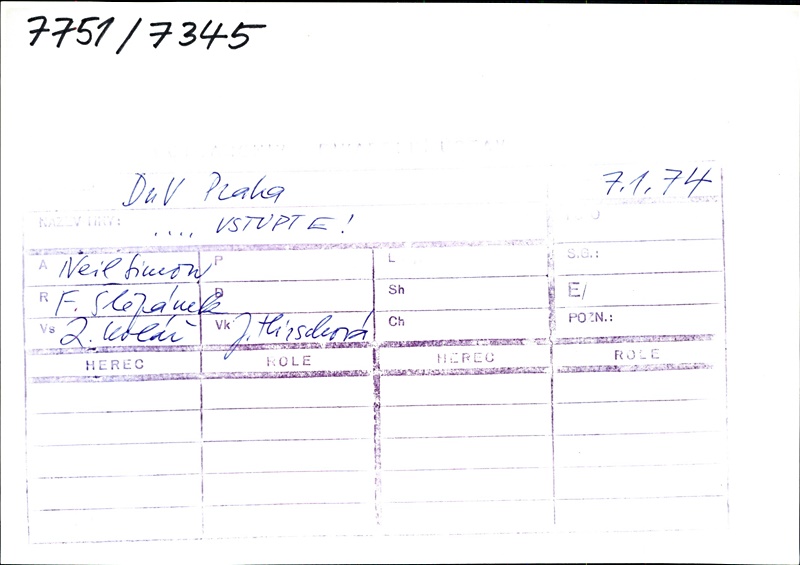 7751/7345
DNV Praha 7.1.74
NÁZEV HRY: .... VSTUPTE!
A Neil Simon P L S.G.:
R F. Štěpánek D Sh E/
Vs Z. Kolář Vk J. Hirschová Ch POZN.:
HEREC ROLE HEREC ROLE